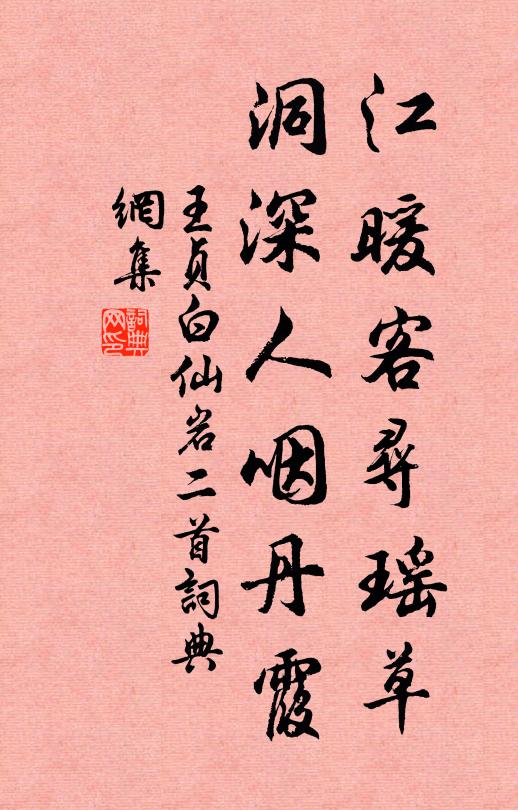 江暖客尋瑶草
洞深人咽丹霞
王貞白仙岩二首詞典
網集
詞典
网印